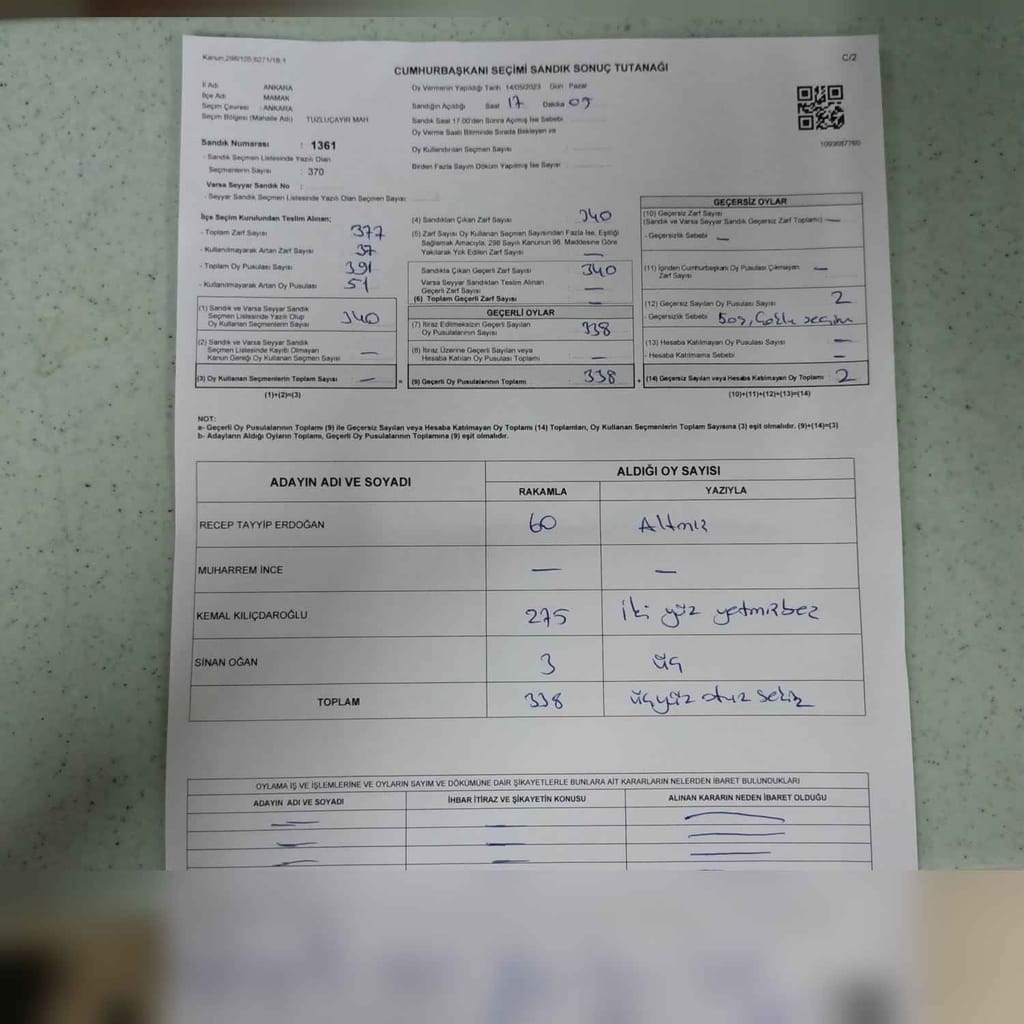 Kanun:298/105,6271/18-1
C/2
CUMHURBAŞKANI SEÇİMİ SANDIK SONUÇ TUTANAĞI
İl Adı : ANKARA
İlçe Adı : MAMAK
Seçim Çevresi : ANKARA
Seçim Bölgesi (Mahalle Adı) : TUZLUÇAYIR MAH
Oy Vermenin Yapıldığı Tarih 14/05/2023 Gün : Pazar
Sandığın Açıldığı Saat 17 Dakika 05
Sandık Saat 17.00'den Sonra Açılmış İse Sebebi
Oy Verme Saati Bitiminde Sırada Bekleyen ve
Oy Kullandırılan Seçmen Sayısı
Birden Fazla Sayım Döküm Yapılmış İse Sayısı
Sandık Numarası : 1361
- Sandık Seçmen Listesinde Yazılı Olan
Seçmenlerin Sayısı : 370
Varsa Seyyar Sandık No :
- Seyyar Sandık Seçmen Listesinde Yazılı Olan Seçmen Sayısı
İlçe Seçim Kurulundan Teslim Alınan;
- Toplam Zarf Sayısı 377
- Kullanılmayarak Artan Zarf Sayısı 37
- Toplam Oy Pusulası Sayısı 391
- Kullanılmayarak Artan Oy Pusulası 51
(1) Sandık ve Varsa Seyyar Sandık
Seçmen Listesinde Yazılı Olup
Oy Kullanan Seçmenlerin Sayısı 340
(2) Sandık ve Varsa Seyyar Sandık
Seçmen Listesinde Kayıtlı Olmayan
Kanun Gereği Oy Kullanan Seçmen Sayısı —
(3) Oy Kullanan Seçmenlerin Toplam Sayısı — =
(1)+(2)=(3)
(4) Sandıktan Çıkan Zarf Sayısı 340
(5) Zarf Sayısı Oy Kullanan Seçmen Sayısından Fazla İse, Eşitliği
Sağlamak Amacıyla, 298 Sayılı Kanunun 98. Maddesine Göre
Yakılarak Yok Edilen Zarf Sayısı —
Sandıkta Çıkan Geçerli Zarf Sayısı 340
Varsa Seyyar Sandıktan Teslim Alınan
Geçerli Zarf Sayısı —
(6) Toplam Geçerli Zarf Sayısı —
GEÇERLİ OYLAR
(7) İtiraz Edilmeksizin Geçerli Sayılan
Oy Pusulalarının Sayısı 338
(8) İtiraz Üzerine Geçerli Sayılan veya
Hesaba Katılan Oy Pusulası Toplamı —
(9) Geçerli Oy Pusulalarının Toplamı 338 +
GEÇERSİZ OYLAR
(10) Geçersiz Zarf Sayısı
(Sandık ve Varsa Seyyar Sandık Geçersiz Zarf Toplamı) —
- Geçersizlik Sebebi —
(11) İçinden Cumhurbaşkanı Oy Pusulası Çıkmayan
Zarf Sayısı —
(12) Geçersiz Sayılan Oy Pusulası Sayısı 2
- Geçersizlik Sebebi Boş, Çoklu seçim
(13) Hesaba Katılmayan Oy Pusulası Sayısı —
- Hesaba Katılmama Sebebi —
(14) Geçersiz Sayılan veya Hesaba Katılmayan Oy Toplamı : 2
(10)+(11)+(12)+(13)=(14)
NOT:
a- Geçerli Oy Pusulalarının Toplamı (9) ile Geçersiz Sayılan veya Hesaba Katılmayan Oy Toplamı (14) Toplamları, Oy Kullanan Seçmenlerin Toplam Sayısına (3) eşit olmalıdır. (9)+(14)=(3)
b- Adayların Aldığı Oyların Toplamı, Geçerli Oy Pusulalarının Toplamına (9) eşit olmalıdır.
ADAYIN ADI VE SOYADI
ALDIĞI OY SAYISI
RAKAMLA YAZIYLA
RECEP TAYYİP ERDOĞAN 60 Altmış
MUHARREM İNCE — —
KEMAL KILIÇDAROĞLU 275 iki yüz yetmişbeş
SİNAN OĞAN 3 üç
TOPLAM 338 üçyüz otuz sekiz
OYLAMA İŞ VE İŞLEMLERİNE VE OYLARIN SAYIM VE DÖKÜMÜNE DAİR ŞİKAYETLERLE BUNLARA AİT KARARLARIN NELERDEN İBARET BULUNDUKLARI
ADAYIN ADI VE SOYADI İHBAR İTİRAZ VE ŞİKAYETİN KONUSU ALINAN KARARIN NEDEN İBARET OLDUĞU